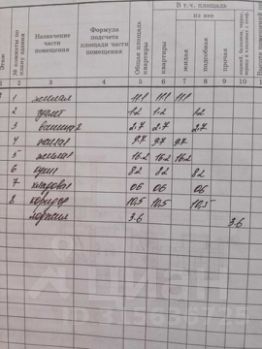 В т.ч. площадь
Этаж
№ комнаты по плану здания
Назначение части помещения
Формула подсчета площади части помещения
Общая площадь квартиры
из нее
квартиры
жилая
подсобная
прочая
1 2 3 4 5 6 7 8 9 10
1 жилая 11.1 11.1 11.1
2 туалет 1.2 1.2 1.2
3 ванная 2.7 2.7 2.7
4 жилая 9.7 9.7 9.7
5 жилая 16.2 16.2 16.2
6 кухня 8.2 8.2 8.2
7 кладовая 0.6 0.6 0.6
8 коридор 10,5 10,5 10,5
лоджия 3.6 3.6